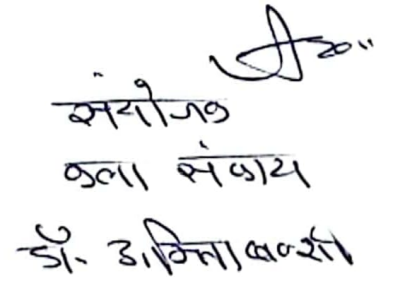 संयोजक
कला संकाय
डॉ. अमिता बक्शी